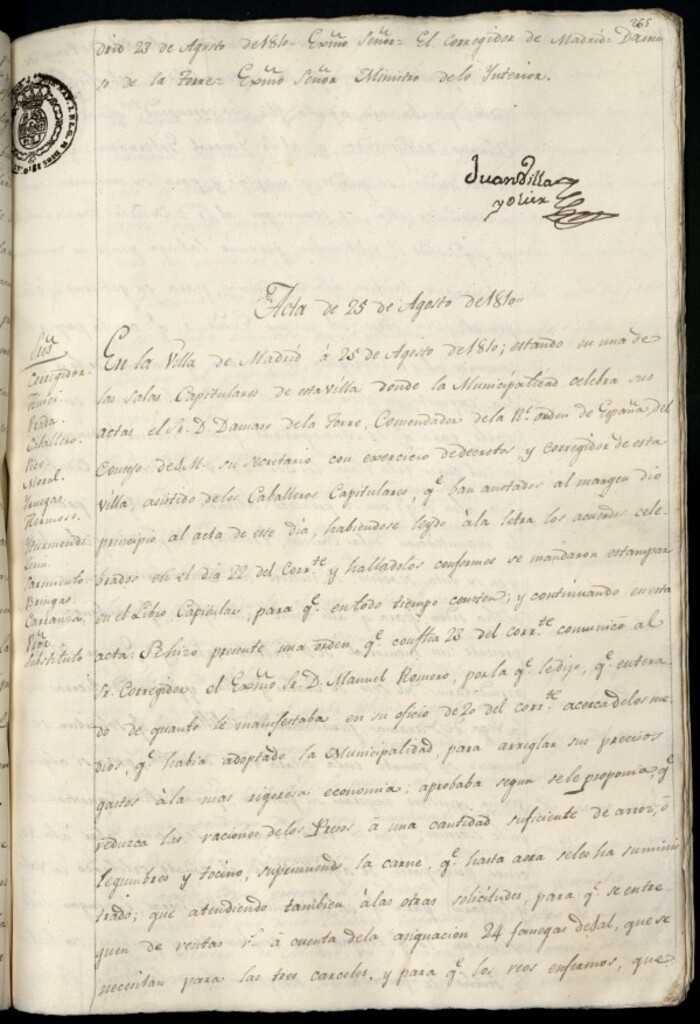 265
drid 23 de Agosto de 1810= Exmo Señor= El Corregidor de Madrid= Dama
so de la Torre= Exmo Señor Ministro de lo Interior.
Juan Villa
y olier
Acta de 25 de Agosto de 1810=
Sres
Corregidor.
Prada.
Caballero.
Rio.
Moral.
Yruegas.
Hermoso.
Yzurmendi.
Sarmiento.
Bringas.
Carranza.
Substituto
En la Villa de Madrid à 25 de Agosto de 1810; estando en una de
las Salas Capitulares de esta villa donde la Municipalidad celebra sus
actas el Sr. D. Damaso de la Torre, Comendador de la Rl. orden de España, del
Consejo de S.M. su Secretario con exercicio de decretos y Corregidor de esta
Villa, asistido de los Caballeros Capitulares, qe. han anotados al margen dio
principio al acta de este dia, habiendose leydo à la letra los acuerdos cele-
brados en el dia 22 del Corrte. y halladolos conformes se mandaron estampar
en el Libro Capitular, para qe. en todo tiempo consten; y continuando en esta
acta: Se hizo presente una orden qe. con fha 23 del corrte. comunicò al
Sr. Corregidor el Exmo Sr. D. Manuel Romero, por la qe. le dijo, qe. entera-
do de quanto le manifestaba en su oficio de 20 del corrte. acerca de los me-
dios, qe. habia adoptado la Municipalidad, para arreglar sus precisos
gastos à la mas rigorosa economia; aprobaba segun se le proponia, qe.
reduzca las raciones de los Presos à una cantidad suficiente de arroz, ò
legumbres y tocino, suprimiendo la carne, qe. hasta aora seles ha suminis
trado; que atendiendo tambien à las otras solicitudes, para qe. se entre-
guen de rentas Rs. à cuenta de la asignacion 24 fanegas de sal, que se
necesitan para las tres carceles, y para qe. los reos enfermos, que